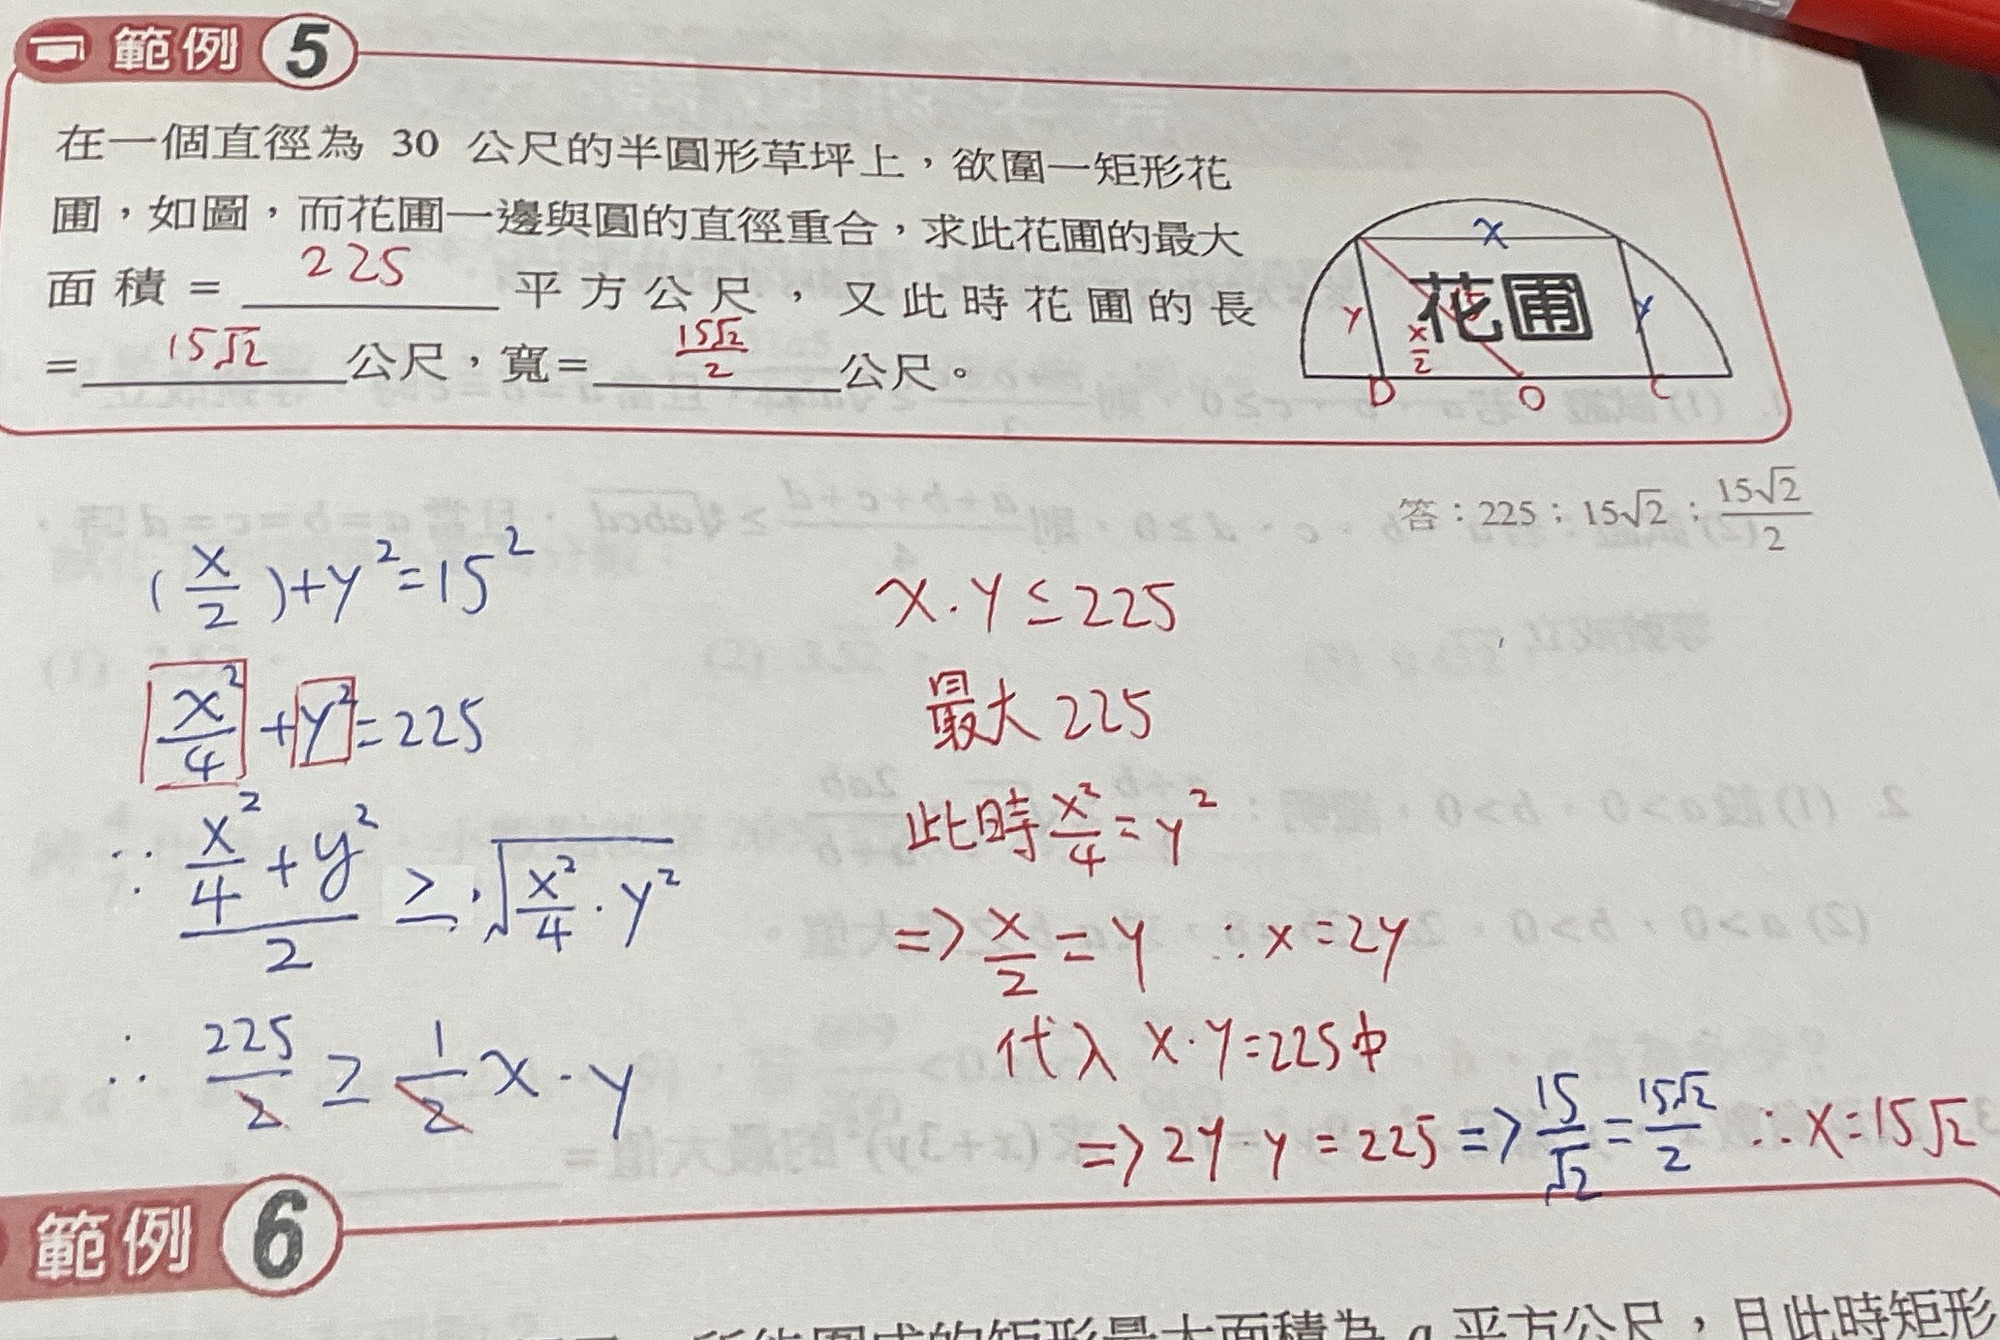 範例 5
在一個直徑為 30 公尺的半圓形草坪上，欲圍一矩形花
圃，如圖，而花圃一邊與圓的直徑重合，求此花圃的最大
面積 = 225 平方公尺，又此時花圃的長
= 15√2 公尺，寬= 15√2/2 公尺。
x
y x/2 花圃 y
D O C
答：225；15√2；15√2/2
(x/2)+y²=15²
x²/4+y²=225
∵ (x²/4+y²)/2 ≥ √(x²/4·y²)
∴ 225/2 ≥ 1/2 x·y
x·y≤225
最大 225
此時 x²/4=y²
=> x/2=y ∴x=2y
代入 x·y=225中
=> 2y·y=225 => 15/√2=15√2/2 ∴x=15√2
範例 6